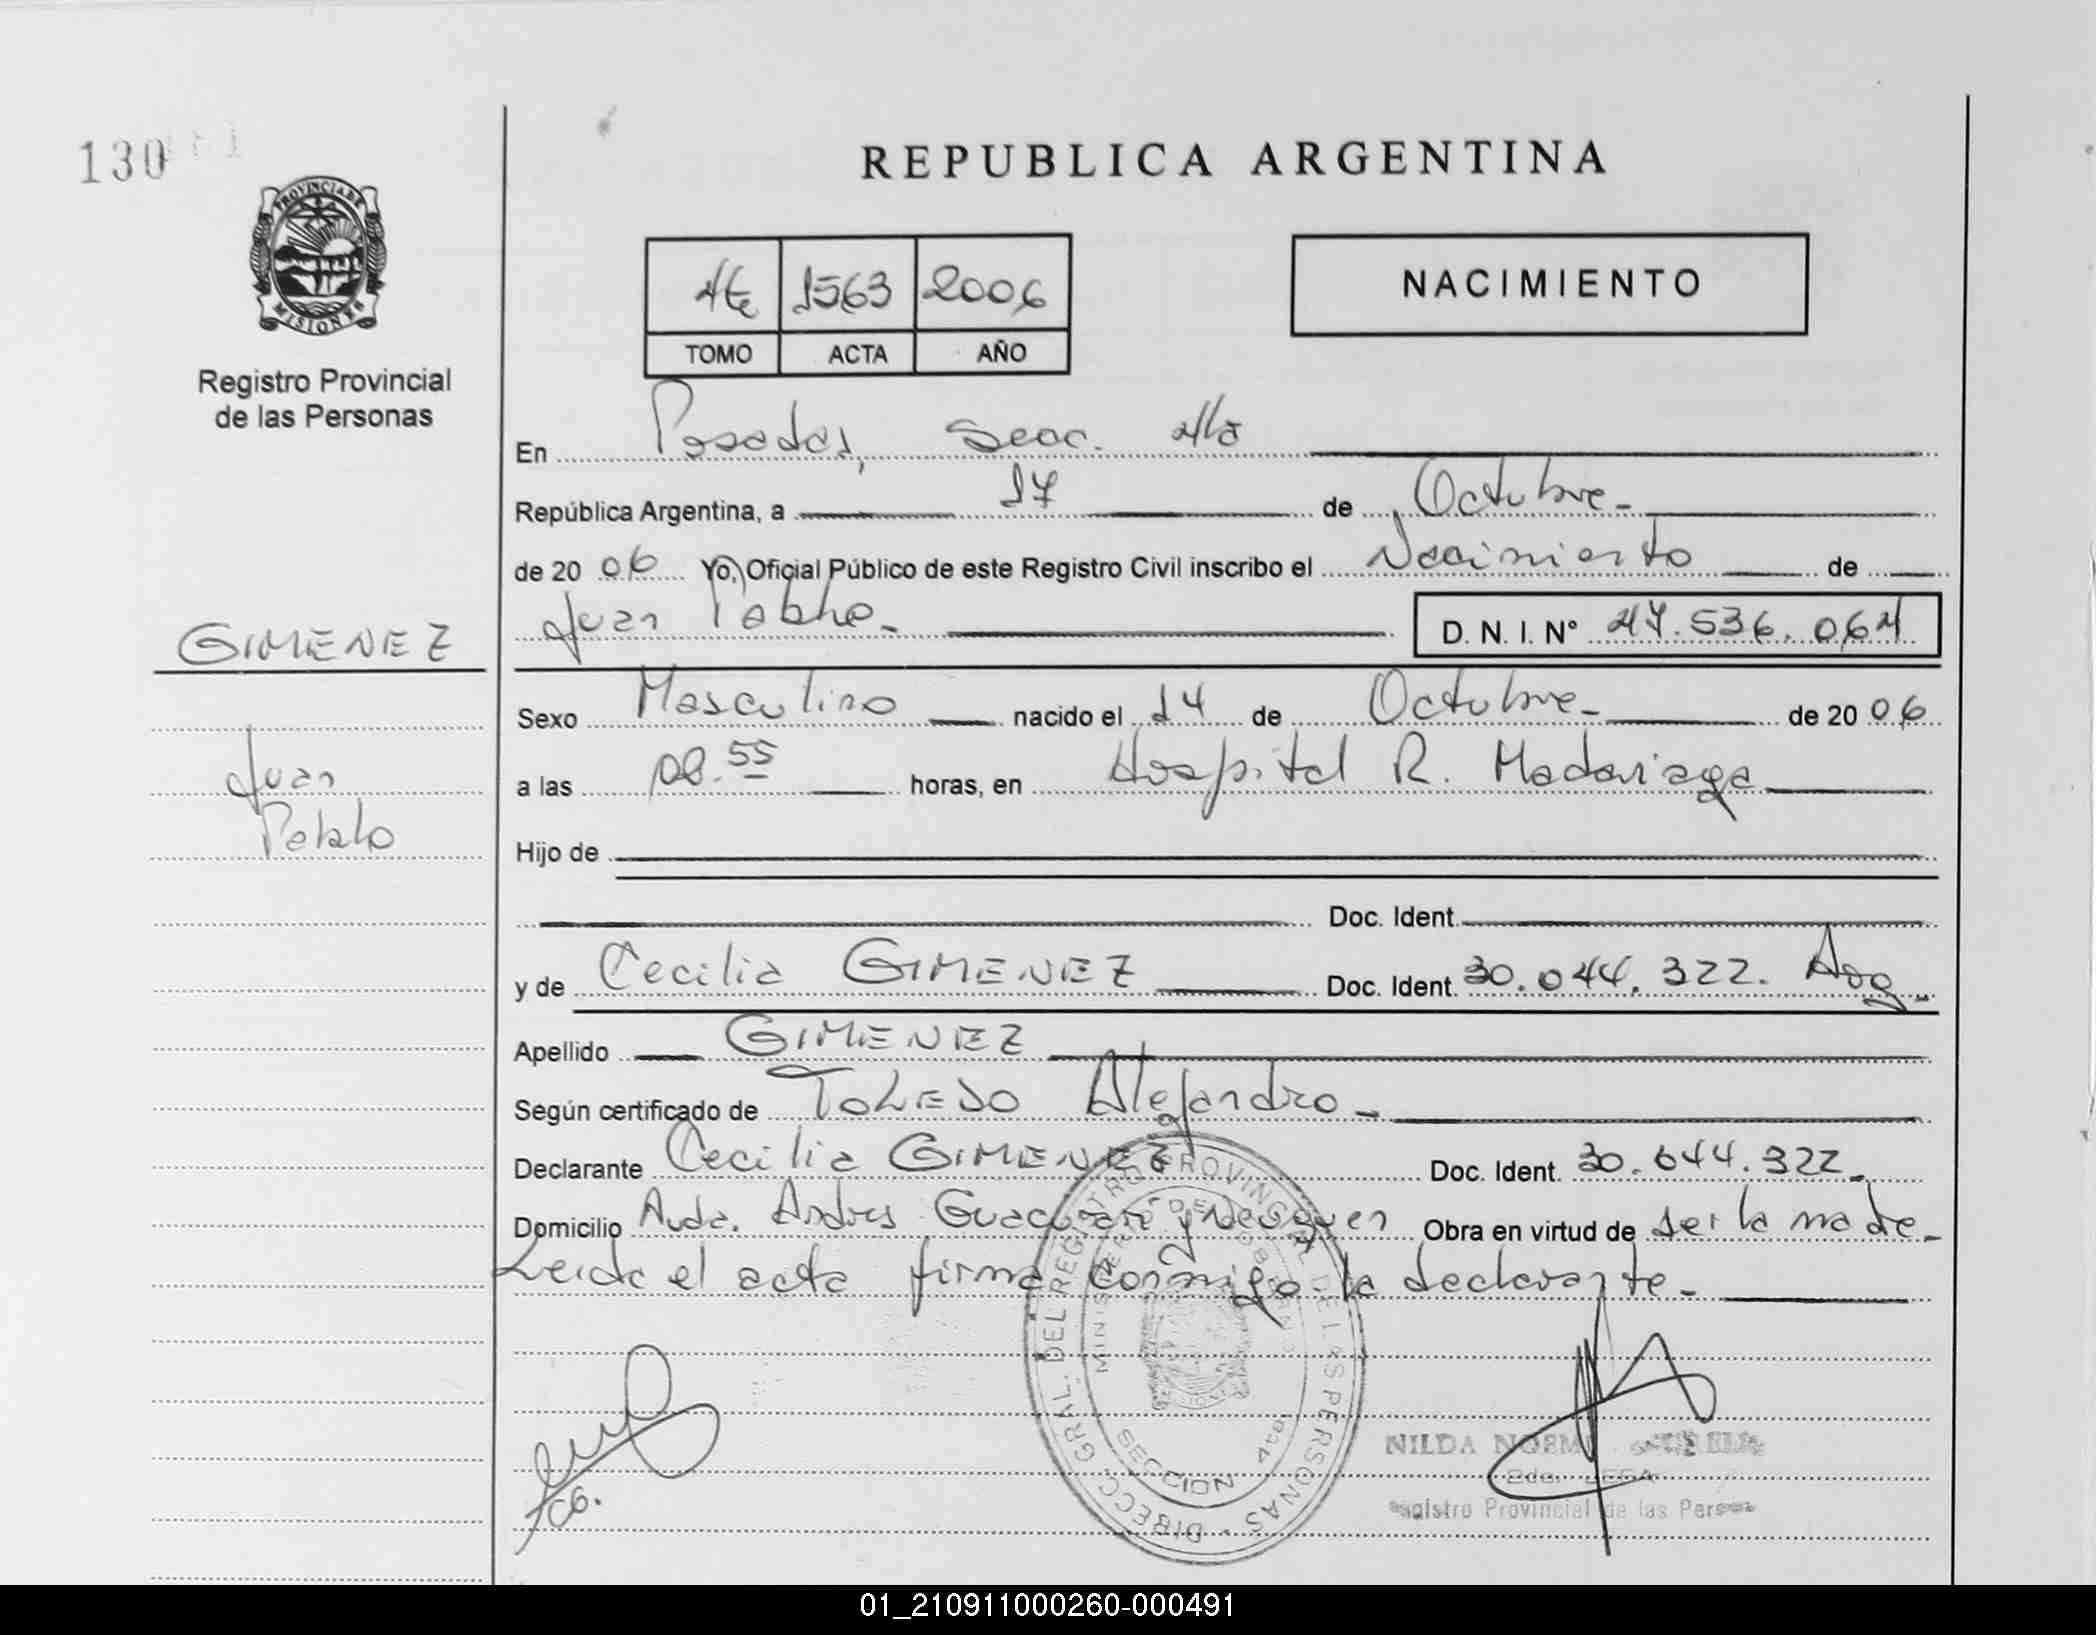 130
REPUBLICA ARGENTINA
PROVINCIA DE
MISIONES
Registro Provincial
de las Personas
1563 2006
TOMO ACTA AÑO
NACIMIENTO
En Posadas, Secc. 4ta
República Argentina, a 17 de Octubre-
de 20 06 Yo, Oficial Público de este Registro Civil inscribo el Nacimiento de
Juan Pablo- D. N. I. N° 47.536.064
GIMENEZ
Juan
Pablo
Sexo Masculino nacido el 14 de Octubre- de 20 06
a las 08.55 horas, en Hospital R. Madariaga
Hijo de
Doc. Ident.
y de Cecilia GIMENEZ Doc. Ident. 30.044.322. Arg-
Apellido GIMENEZ
Según certificado de TOLEDO Alejandro-
Declarante Cecilia GIMENEZ Doc. Ident. 30.644.322-
Domicilio Avda. Andres Guacurari y Neuquen Obra en virtud de ser la madre-
Leida el acta firma conmigo la declarante-
DIRECC. GRAL. DEL REGISTRO PROVINCIAL DE LAS PERSONAS
MINISTERIO DE GOBIERNO
SECCION
CG.
NILDA
Registro Provincial de las Personas
01_210911000260-000491